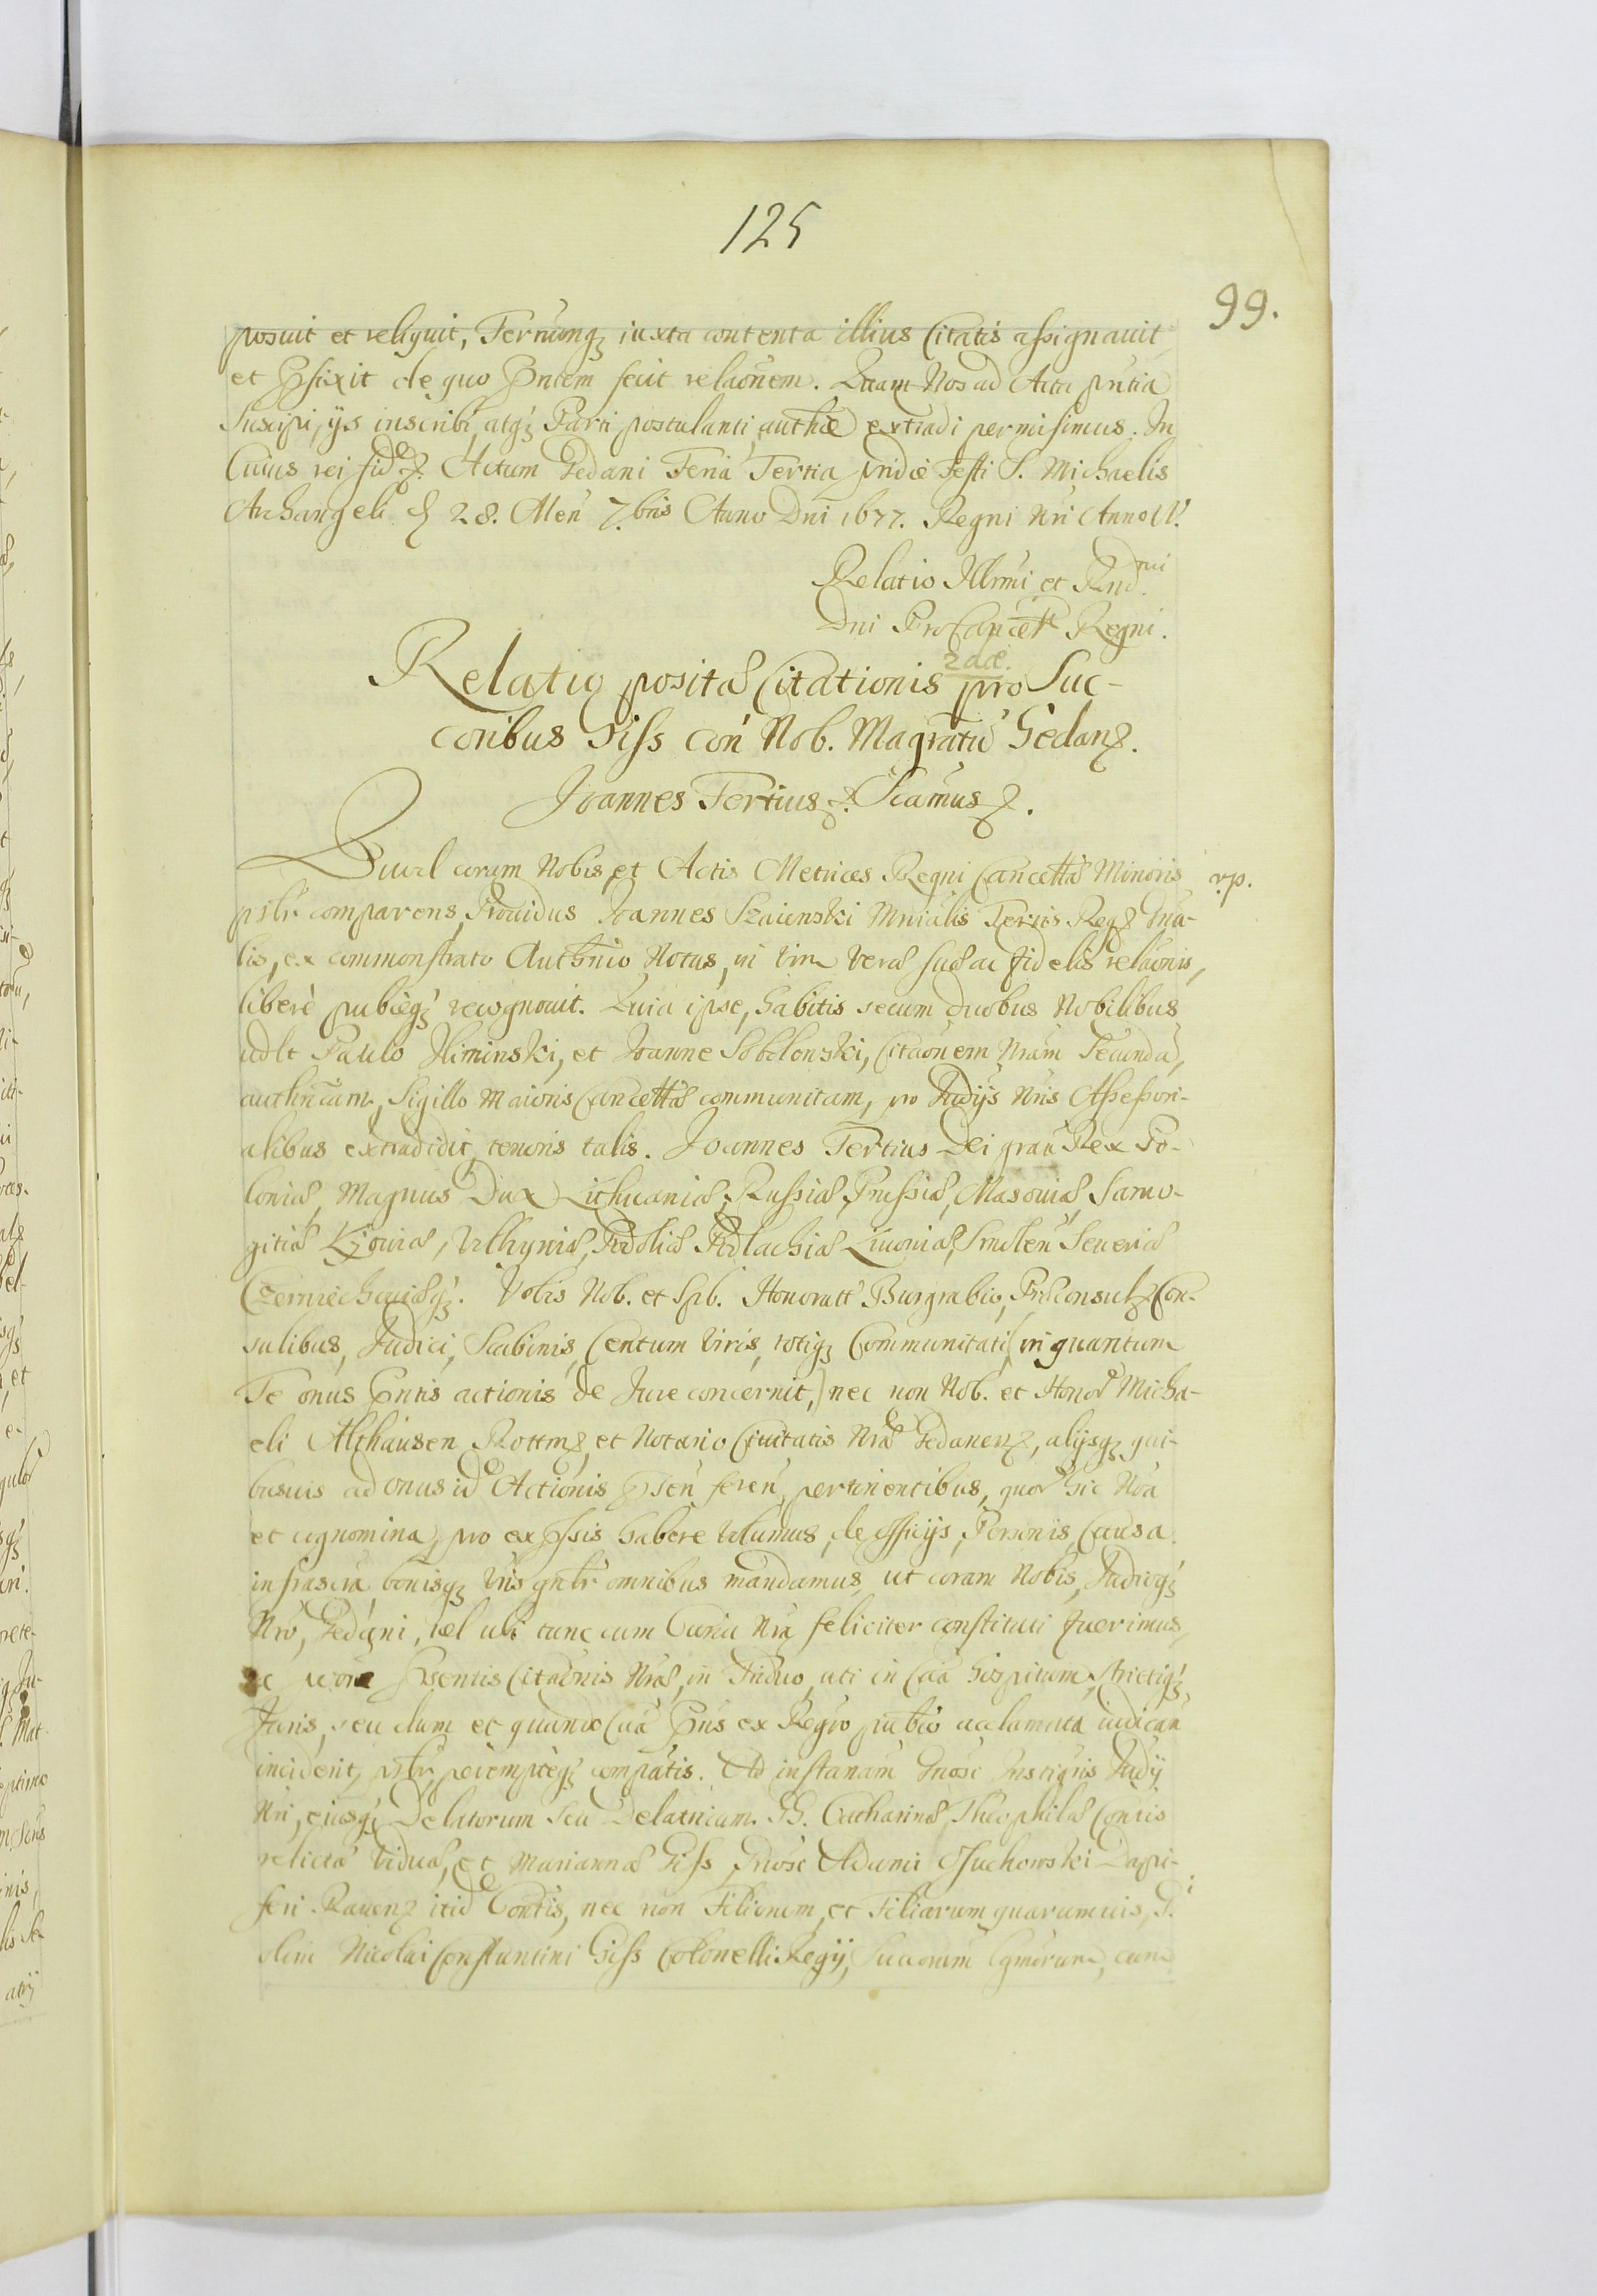 125
99.
posuit et reliquit, Terminoq iuxta contenta illius Citatis assignauit
et Pfixit de quo Pntem fecit relaonem. Quam Nos ad Acta pntia
suscipi, ijs inscribi atq Parti postulanti authe extradi permisimus. In
Cuius rei fid. Actum Gedani Feria Tertia pridie Festi S. Michaelis
Archangeli d 28. Men 7.bris Anno Dni 1677. Regni Nri Anno IV.
Relatio Illrmi et Rndmi
Dni ProCancell Regni.
Relatio positæ Citationis 2dæ. pro Suc-
coribus Giss con Nob. Magratū Gedan.
Joannes Tertius Scamus.
Quod coram Nobis et Actis Metrices Regni Cancellæ Minoris
pslr comparens Prouidus Joannes Szaienski Mnialis Terris Reg Gna-
lis, ex commonstrato Authnio Notus, in vim veræ suæ ac fidelis relaonis,
liberè publiceq recognouit. Quia ipse, habitis secum duobus Nobilibus
udlt Paulo Iliminski, et Joanne Sobolonski, Citaonem Nram Secundā,
authncam, Sigillo Maioris Cancellæ communitam, pro Iudijs Nris Assessori-
alibus extradidit, tenoris talis. Joannes Tertius Dei gra Rex Po-
loniæ, Magnus Dux Lithuaniæ, Russiæ Prussiæ, Masouiæ, Samo-
gitiæ Kijouiæ, Volhyniæ, Podoliæ Podlachiæ Liuoniæ, Smolen Seueriæ
Czerniechouiæq. Vobis Nob. et Spb. Honoratt Burgrabio, Præconsul Con-
sulibus, Judici, Scabinis, Centum Viris, totiq Communitati (in quantum
Te onus Pntis actionis de Jure concernit,) nec non Nob. et Honor Micha-
eli Althausen Rottm et Notario Ciuitatis Nræ Gedanen, alijsq qui-
busuis ad onus id Actionis Psen feren pertinentibus, quor hic Noa
et cognomina, pro expssis habere volumus, de Officijs, Personis, Causa
infrascra bonisq Vris gnlr omnibus mandamus, ut coram Nobis, Iudicioq
Nro, Gedani, vel ubi tunc cum Curia Nra feliciter constituti fuerimus,
Psentis Citaonis Nræ, in Triduo, uti in Caa hospitum, strictiq
Juris, seu dum et quando Caa Pns ex Regro publco acclamata iudican
inciderit, pslr perempteq compatis. Ad instanam Gnosi Instigris Iudij
Nri, eiusq Delatorum seu Delatricum. GG. Catharinæ Theophilæ Contis
relictæ Viduæ, et Mariannæ Giss Gnosi Adami Suchorski Dapi-
feri Rauen itid Contis, nec non Filiorum, et Filiarum quarumuis, G.
olim Nicolai Constantini Giss Colonelli Regij, Succorum Cgnorum, cum